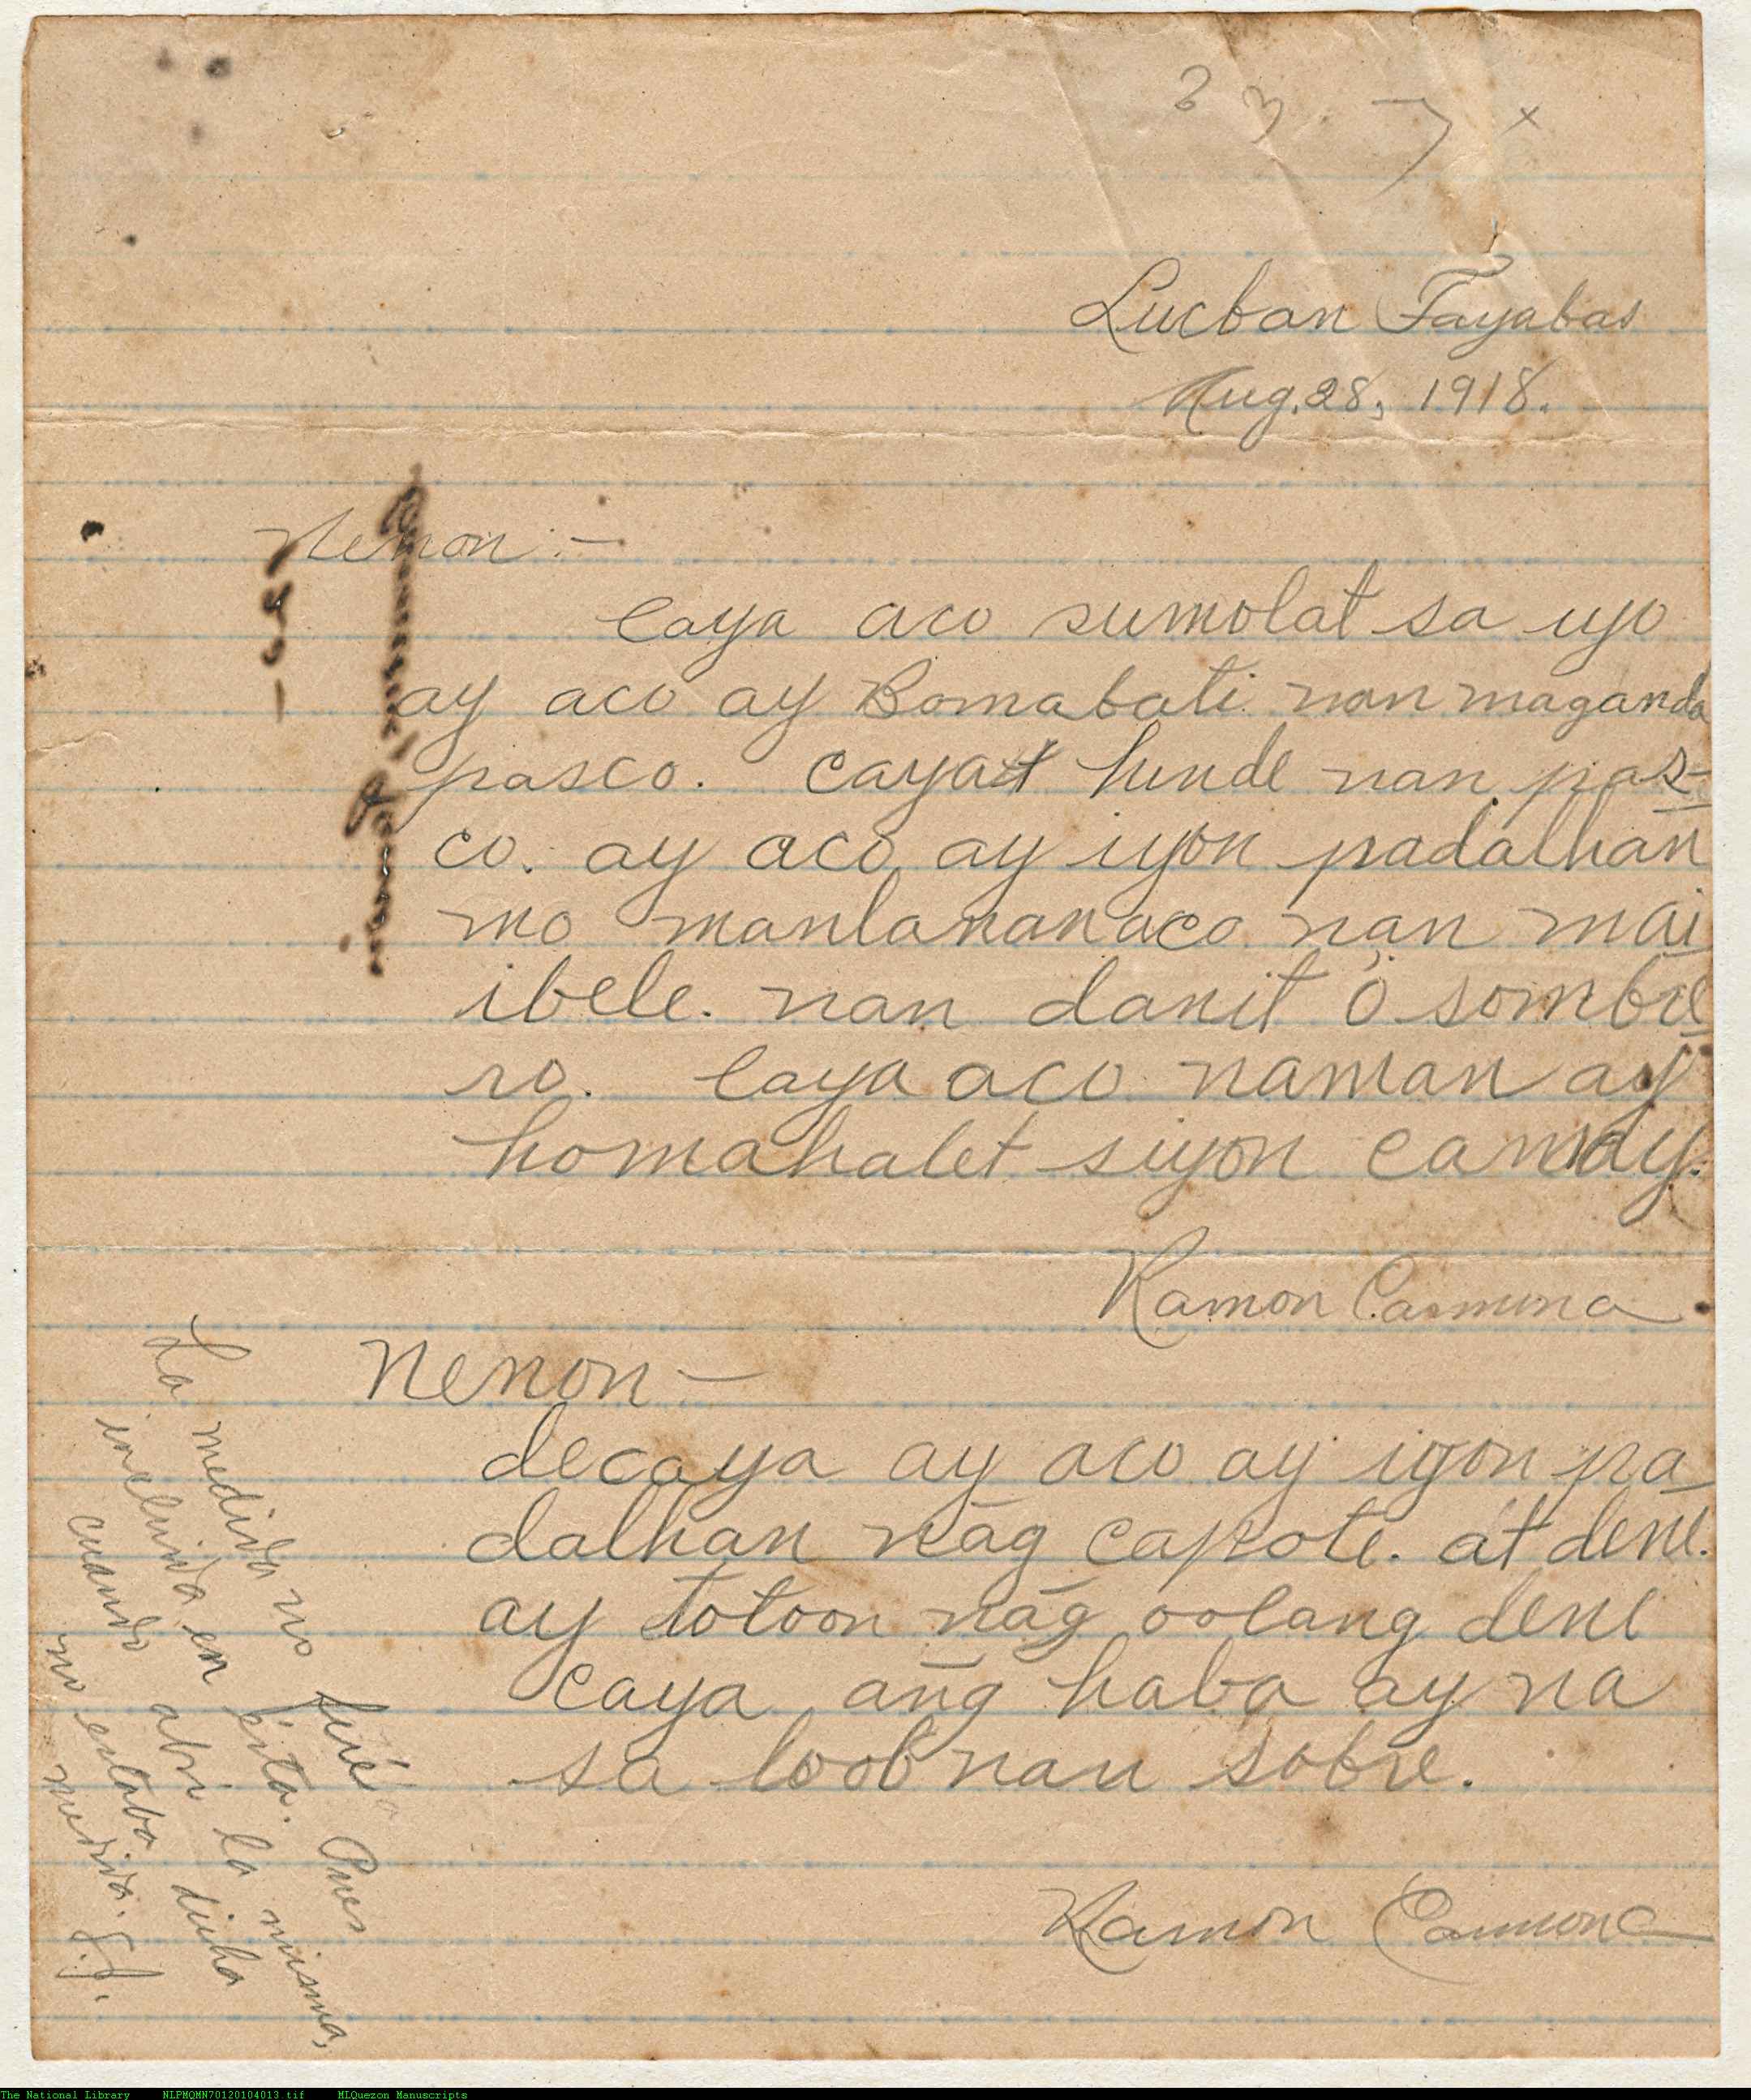 Lucban Tayabas
Aug. 28, 1918.
Nenon :-
Caya aco sumolat sa uyo
ay aco ay Bomabati nan maganda
pasco. Caya hinde nan pas-
co. ay aco ay iyon padalhan
mo manlaman aco nan mai
ibele. nan damit ó sombre
ro. Caya aco naman ay
homahalet siyon camay.
Ramon Carmona
Nenon —
decaya ay aco ay iyon pa
dalhan nāg capote. at dene.
ay totoon nāg oolang dene
caya ang haba ay na
sa loob nan sobre.
Ramon Carmona
La medida no fué Pues
incluida en ésta. misma,
cuando abri la dicha
no estaba
medida.
The National Library NLPMQMN70120104013.tif MLQuezon Manuscripts